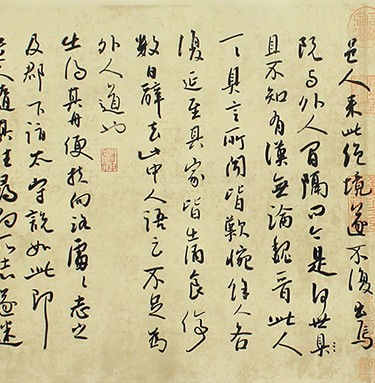 邑人來此絕境遂不復出焉
既与外人間隔問今是何世具
且不知有漢無論魏晉此人
一一具言所聞皆歎惋餘人各
復延至其家皆出酒食停
數日辭去此中人語云不足為
外人道也
出得其舟便扶向路處々志之
及郡下詣太守說如此即
遣人隨其往尋向所志遂迷